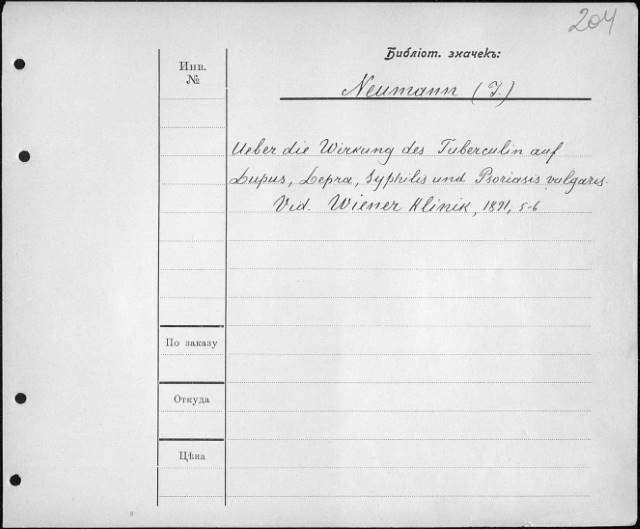 204
Библіот. значекъ:
Инв.
№
Neumann (J.)
Ueber die Wirkung des Tuberculin auf
Lupus, Lepra, Syphilis und Psoriasis vulgaris.
Vid. Wiener Klinik, 1891, 5-6
По заказу
Откуда
Цѣна